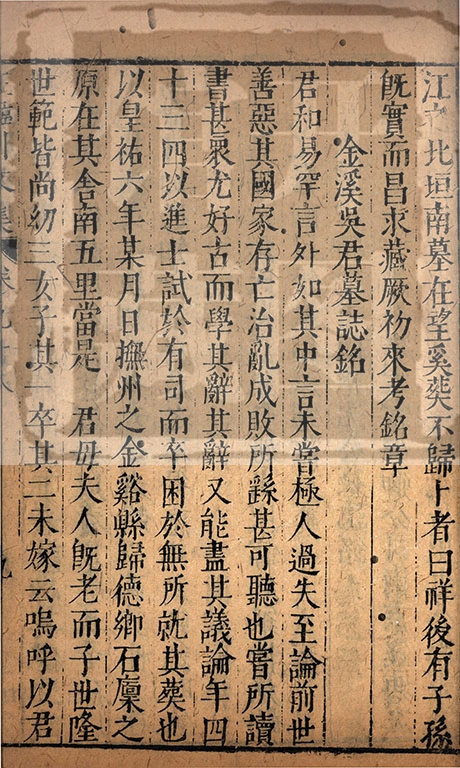 江水北垣南墓在望奚葬不歸卜者曰祥後有子孫
旣實而昌求藏厥初來考銘章
金溪吳君墓誌銘
君和易罕言外如其中言未嘗極人過失至論前世
善惡其國家存亡治亂成敗所繇甚可聽也嘗所讀
書甚衆尤好古而學其辭其辭又能盡其議論年四
十三四以進士試於有司而卒困於無所就其葬也
以皇祐六年某月日撫州之金谿縣歸德鄉石廩之
原在其舍南五里當是 君毋夫人旣老而子世隆
世範皆尚幼三女子其一卒其二未嫁云嗚呼以君